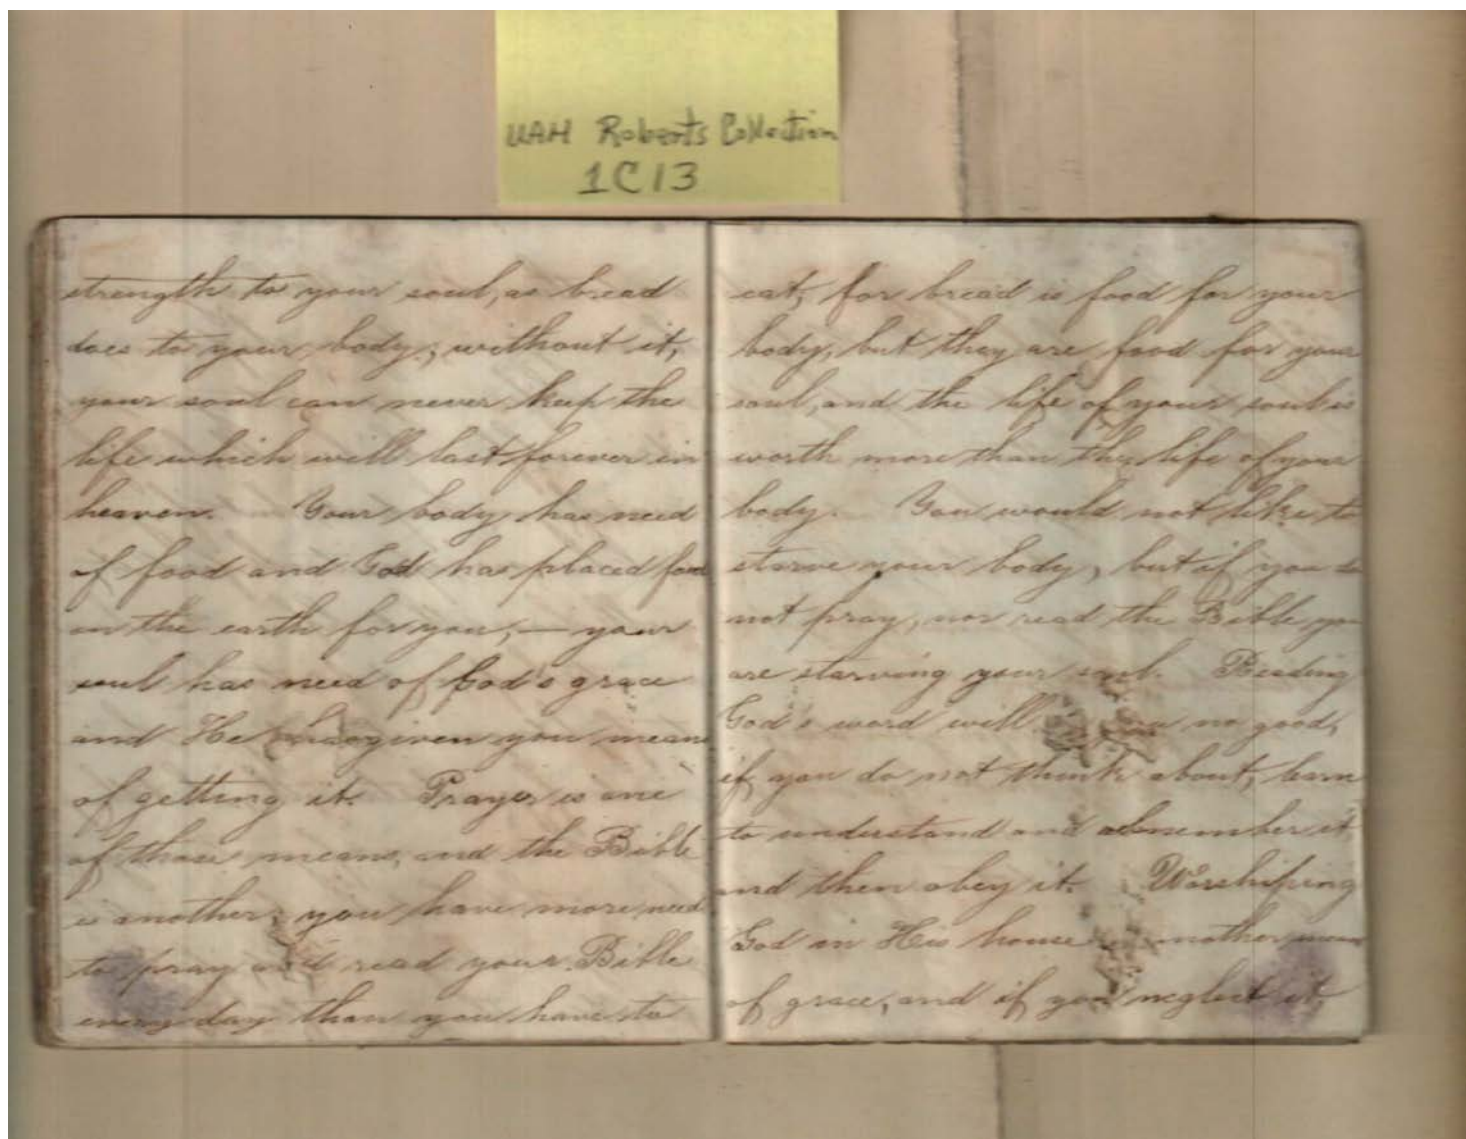 UAH Roberts Collection
1C13
strength to your soul, as bread
does to your body; without it,
your soul can never keep the
life which will last forever in
heaven. Your body has need
of food and God has placed food
in the earth for you, — your
soul has need of God's grace
and He has given you means
of getting it. Prayer is one
of those means, and the Bible
is another; you have more need
to pray and read your Bible
every day than you have to
eat, for bread is food for your
body, but they are food for your
soul, and the life of your soul is
worth more than the life of your
body. You would not like to
starve your body, but if you do
not pray, nor read the Bible you
are starving your soul. Reading
God's word will you no good,
if you do not think about, learn
to understand and remember it
and then obey it. Worshiping
God in His house another means
of grace, and if you neglect it,